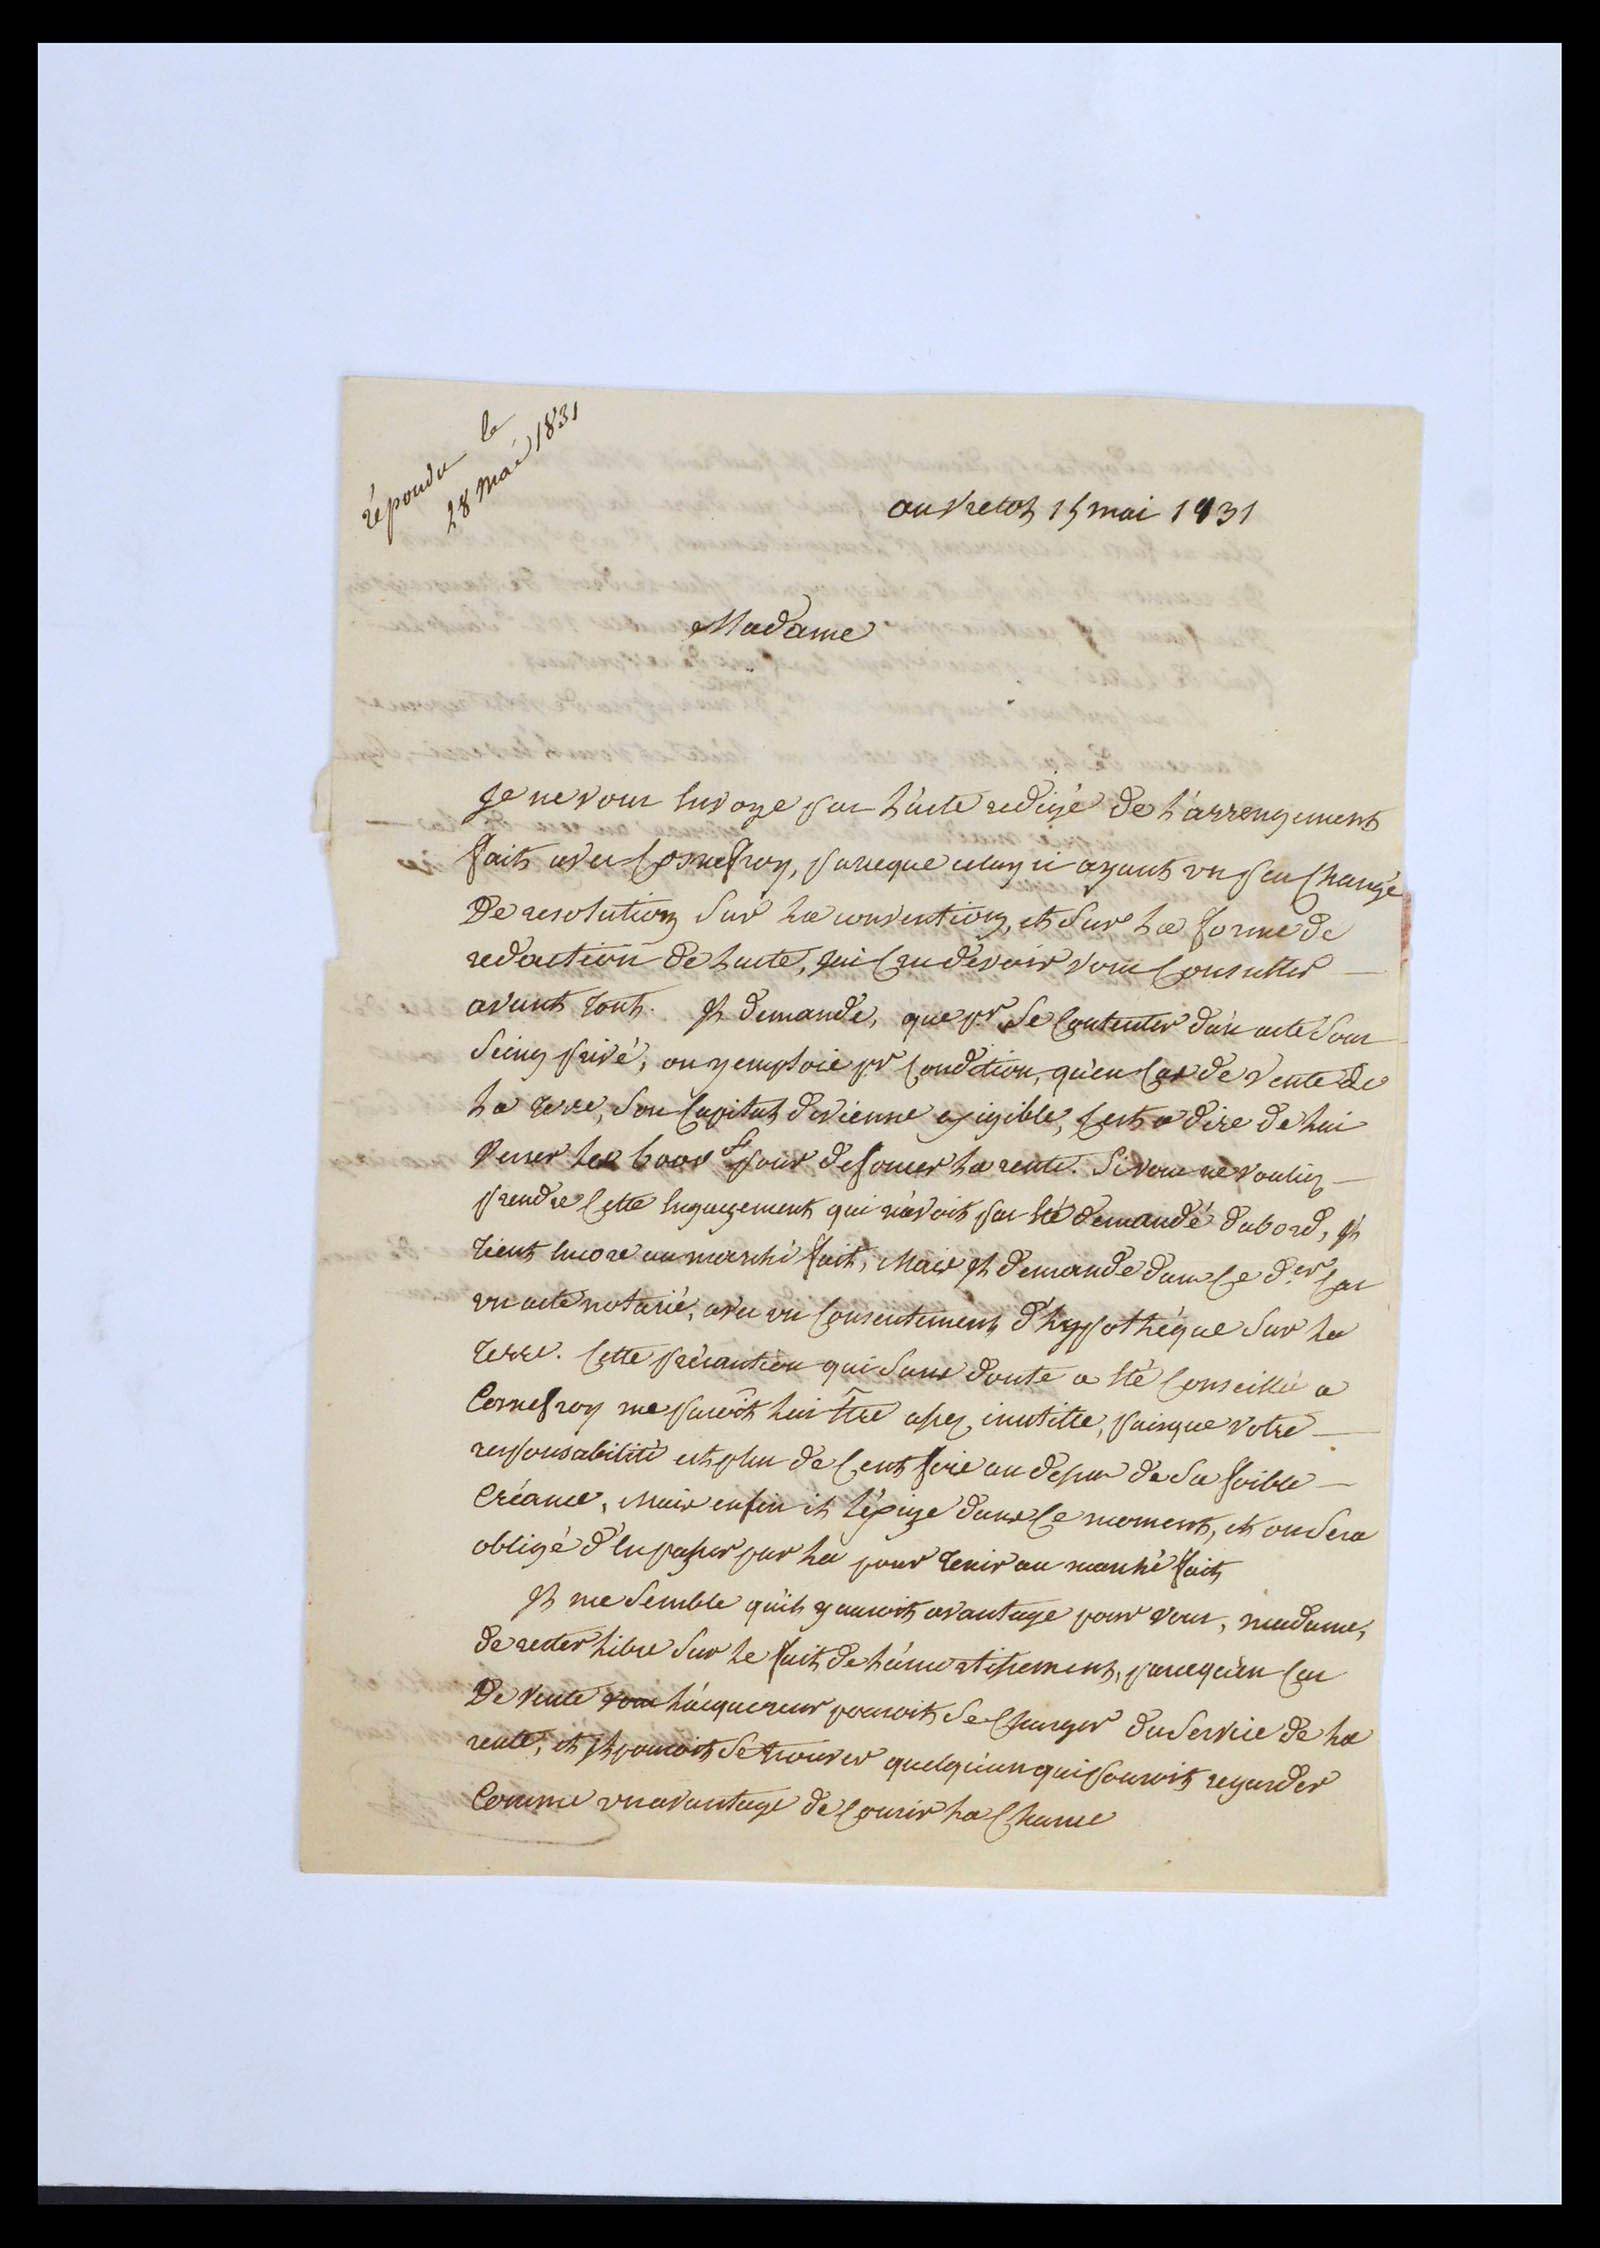 répondu le
28 mai 1831
au Vretot 15 mai 1831
Madame
Je ne vous envoye pas l'acte redigé de l'arrengement
fait avec Cosnefroy, parceque celuy ci ayant un peu changé
De resolution sur la convention, et sur la forme de
redaction de l'acte, j'ai cru devoir vous consulter
avant tout. Il demande, que pr se contenter d'un acte sous
seing privé, on y emploie pr condition, qu'en cas de vente de
la terre, son capital devienne exigible, c'est a dire de lui
verser les 6000 f pour defoncer la rente. Si vous ne vouliez
prendre cette engagement qui n'avoit pas été demandé d'abord, il
tient encore au marché fait, Mais il demande dans ce der cas
un acte notarié, avec un consentement d'hypothéque sur la
terre. Cette précaution qui sans doute a été conseillée a
Cosnefroy me paroît lui être assez inutille, puisque votre
responsabilité est plus de cent fois au dessus de sa foible
créance, Mais enfin il l'éxige dans ce moment, et on sera
obligé d'en passer par la pour tenir au marché fait
Il me semble qu'il y auroit avantage pour vous, madame,
de rester libre sur le fait de l'amortissement, parcequ'en cas
De vente vous l'acquereur pouroit se charger du service de la
rente, et il pouroit se trouver quelqu'un qui pouroit regarder
comme un avantage de courir la chance